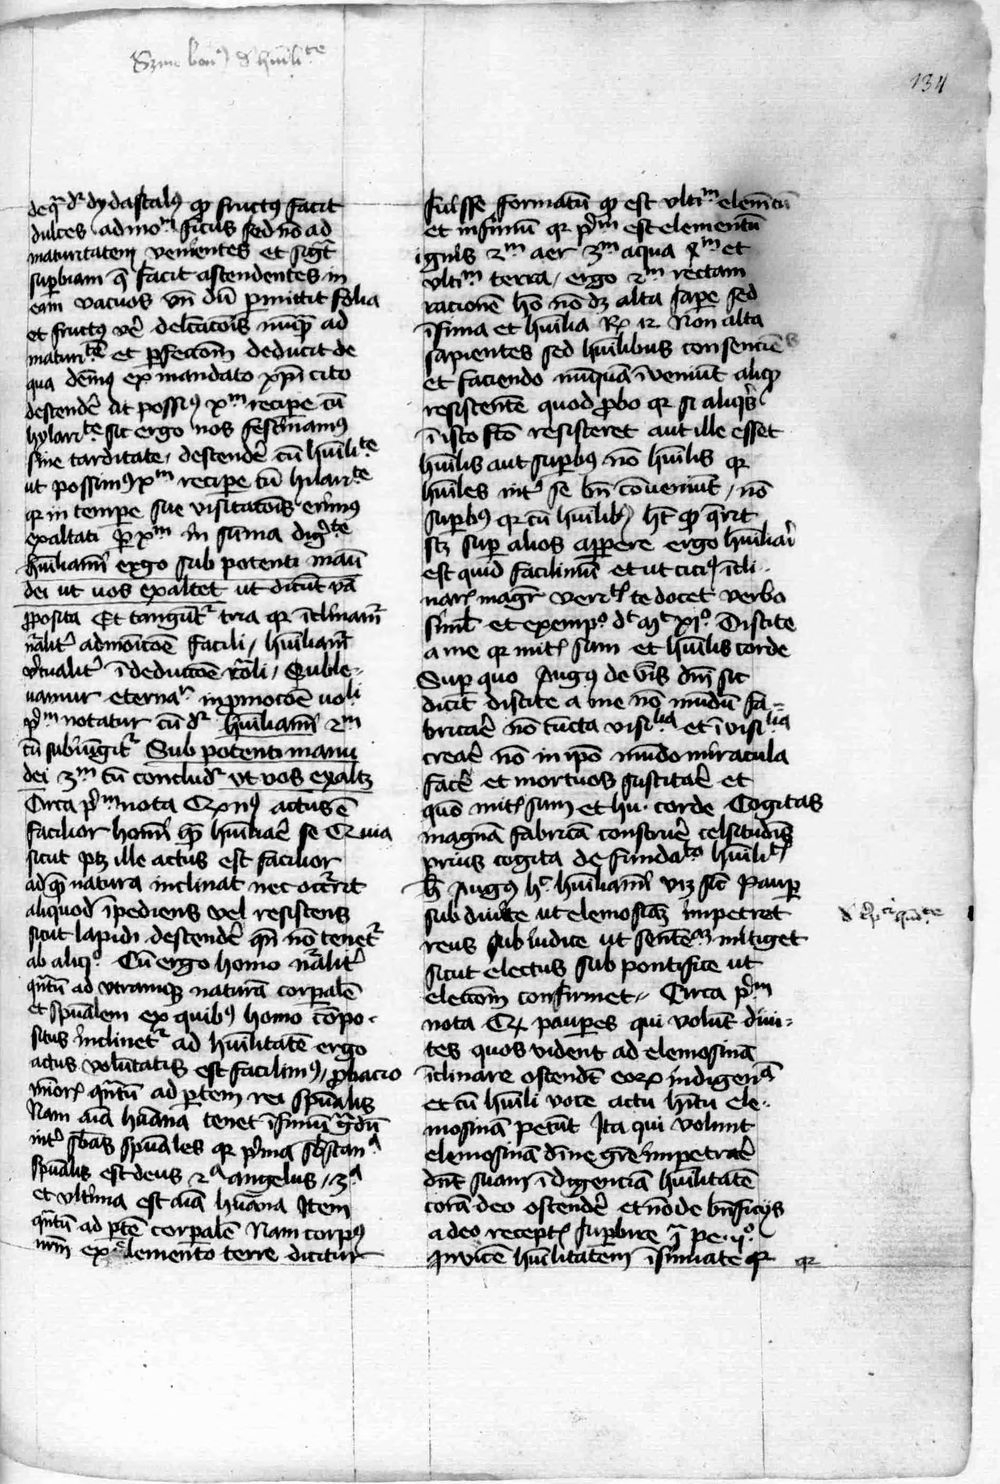 Sermo bonus de humilitate
134
de qua dicit dydascalus quod fructus facit
dulces ad modum ficus sed non ad
maturitatem venientes et significat
superbiam que facit ascendentes in
eam vacuos vnde dum permittit folia
et fructus vere delectacionis nunquam ad
maturitatem et perfectionem deducit de
qua demus ex mandato christi cito
descendere ut possimus christum recipere cum
hylaritate sic ergo nos festinamus
sine tarditate descendere cum humilitate
ut possimus christum recipere cum hilaritate
quia in tempore sue visitationis erimus
exaltati per christum in summa dignitate
humiliamini ergo sub potenti manu
dei ut uos exaltet ut dicunt verba
proposita Et tanguntur tria quia inclinamur
naturaliter admonicione facili humiliamini
virtualiter in deductione rationali Suble-
uamur eternaliter in promocione
primum notatur cum dicitur humiliamini 2m
cum subiungitur Sub potenti manu
dei 3m cum concluditur vt vos exaltet
Circa primum nota Quod nullus actus est
facilior homini quam humiliare se Quia
sicut patet ille actus est facilior
ad quem natura inclinat nec occurrit
aliquod inpediens vel resistens
sicut lapidi descendere quando non tenetur
ab aliquo Cum ergo homo naturaliter
quantum ad vtramque naturam corporalem
et spiritualem ex quibus homo compo-
situs inclinetur ad humilitatem ergo
actus voluntatis est facilimus probacio
minoris quantum ad partem rei spiritualis
Nam anima humana tenet infimum gradum
inter substancias spirituales quia prima substancia
spiritualis est deus 2a angelus 3a
et vltima est anima humana Item
quantum ad partem corporalem Nam corpus
nostrum ex elemento terre dicitur
fuisse formatum quod est vltimum elementum
et infimum quia primum est elementum
ignis 2m aer 3m aqua 4m et
vltimum terra ergo secundum rectam
racionem homo non debet alta sapere sed
infima et humilia Ro 12 Non alta
sapientes sed humilibus consencientes
et faciendo nunquam inveniunt aliquem
resistentem quod probo quia si aliquis
in isto facto resisteret aut ille esset
humilis aut superbus non humilis quia
humiles inter se bene conveniunt non
superbus quia cum humilibus habet quod querit
scilicet super alios apparere ergo humiliari
est quid facilimum et ut cicius incli-
naris magister veritatis te docet verbo
simul et exemplo dicit Mt xi Discite
a me quia mitis sum et humilis corde
Super quo Augustinus de verbis domini sic
dicit discite a me non mundum fa-
bricare non cuncta visibilia et invisibilia
creare non in ipso mundo miracula
facere et mortuos suscitare et
quoniam mitis sum et hu. corde Cogitas
magnam fabricam construere celsitudinis
prius cogita de fundamento humilitatis
hec Augustinus humiliamini videlicet sicut pauper
sub diuite ut elemosinam impetret
reus sub iudice ut sentenciam mitiget
sicut electus sub pontifice ut
electionem confirmet Circa primum
nota Quod pauperes qui volunt diui-
tes quos vident ad elemosinam
inclinare ostendunt eorum indigenciam
et cum humili voce actu habitu ele-
mosinam petunt Ita qui volunt
elemosinam diuine gracie impetrare
debent suam indigenciam humilitatem
coram deo ostendere et non de beneficiis
a deo receptis superbire pe.
Invicem humilitatem insinuate quia
quia